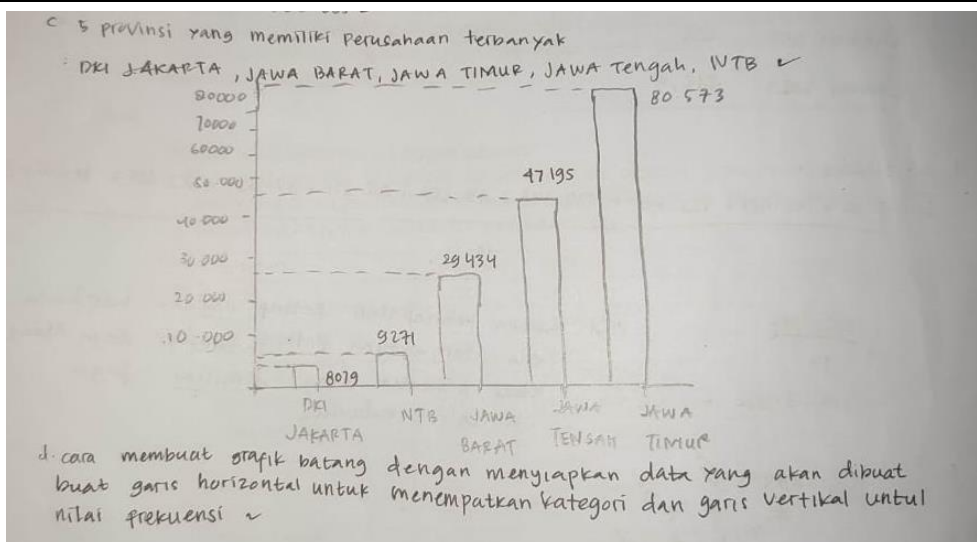 c 5 provinsi yang memiliki perusahaan terbanyak
: DKI JAKARTA, JAWA BARAT, JAWA TIMUR, JAWA Tengah, NTB
80000
80 573
70000
60000
50.000
47 195
40 000
30 000
29 434
20 000
10.000
9271
8079
DKI JAKARTA
NTB
JAWA BARAT
JAWA TENGAH
JAWA TIMUR
d. cara membuat grafik batang dengan menyiapkan data yang akan dibuat
buat garis horizontal untuk menempatkan kategori dan garis vertikal untul
nilai frekuensi